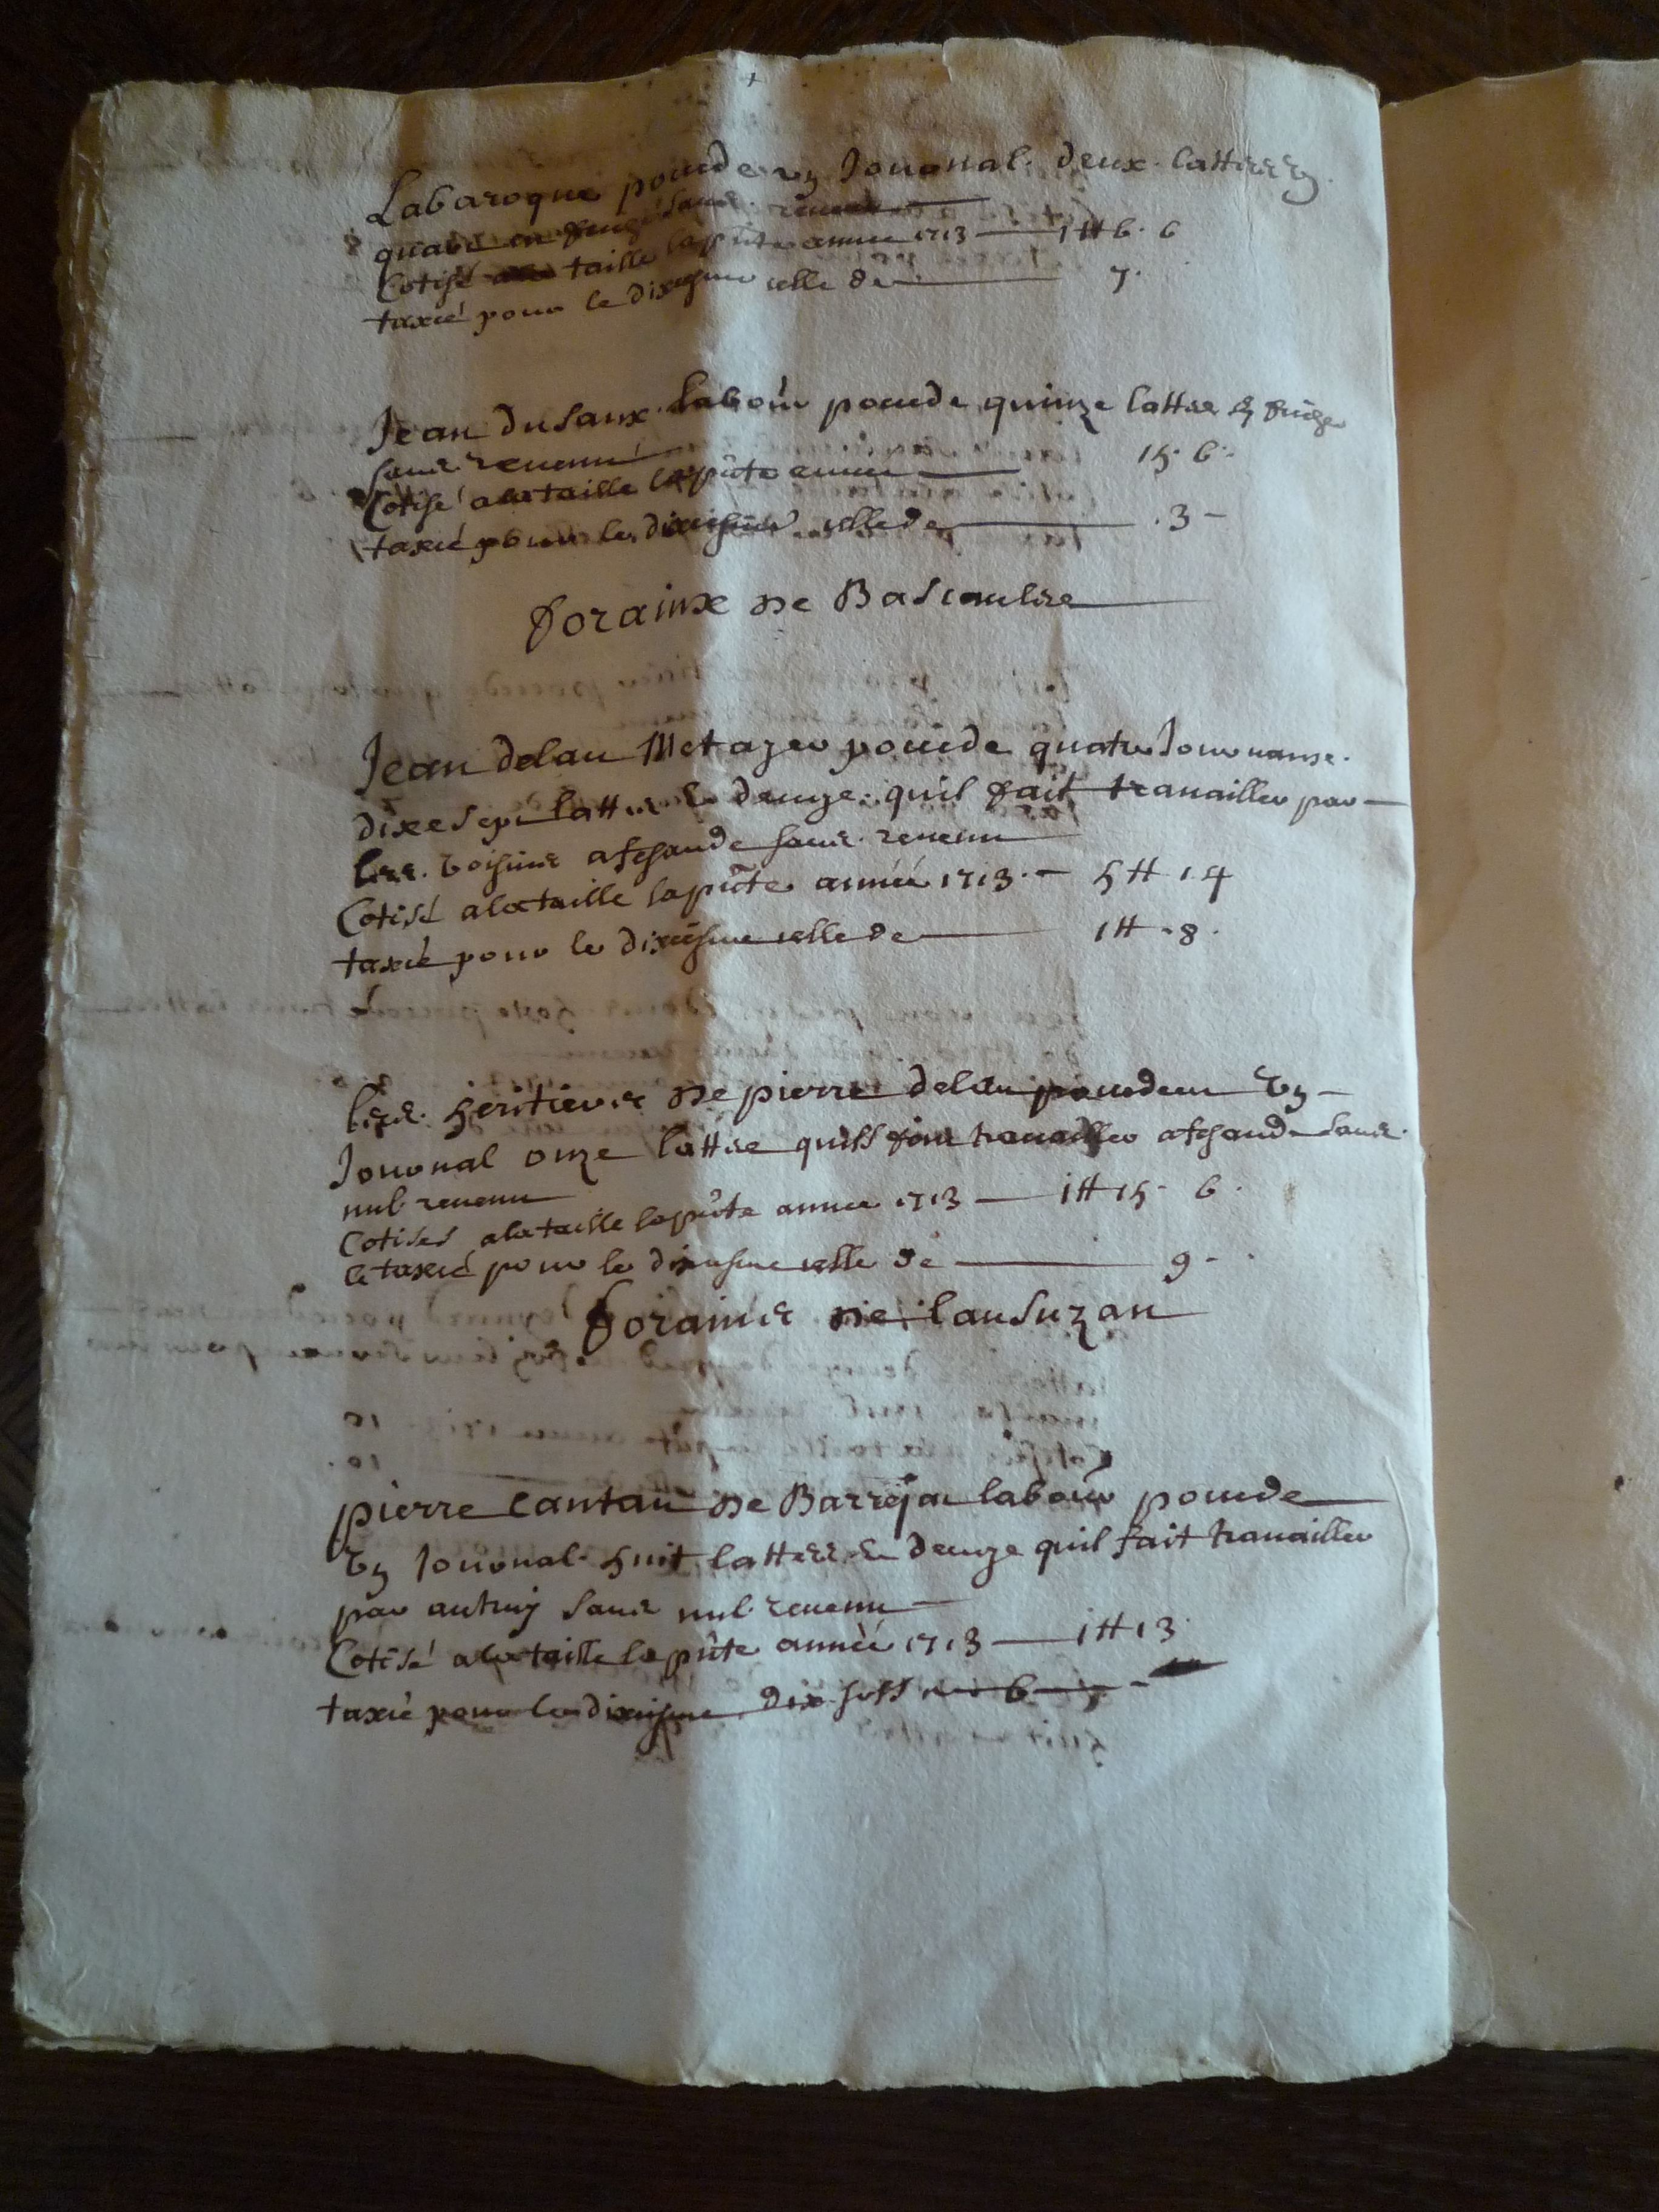 Labaroque pocede un Journal deux lattes &
quart en friche sans revenu
Cotisé a la taille la pñte année 1713 — 1 ₶ 6 · 6
taxé pour le dixiesme celle de — 7 ·
Jean Dusaux labour pocede quinze lattes en friche
sans revenu
Cotisé a la taille la pñte année — 15 · 6 ·
taxé pour le dixiesme celle de — 3 —
forainx de Bascaules
Jean delau Metayer pocede quatre Journaux
dixe sept lattes & demye quil fait travailler par
les voisins a fesande sans revenu
Cotisé a la taille la pñte année 1713 · — 5 ₶ 14
taxé pour le dixiesme celle de — 1 ₶ · 8 ·
les heritiers de pierre delau pocedent un
Journal onze lattes quils font travailler a fesande sans
nul revenu
Cotises a la taille la pñte année 1713 — 1 ₶ 15 · 6 ·
et taxé pour le dixiesme celle de — 9 — ·
forains de lausuzan
pierre Cantau de Barrejac labour pocede
un Journal huit lattes & demye quil fait travailler
par autruy sans nul revenu
Cotisé a la taille la pñte année 1713 — 1 ₶ 13 ·
taxé pour le dixiesme dix sols